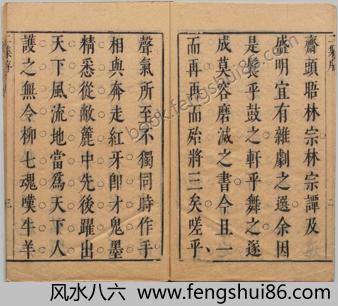 齋頭晤林宗林宗譚及
盛明宜有雜劇之選余因
是髮乎鼓之軒乎舞之遂
成莫容磨滅之書今且一
而再再而殆將三矣嗟乎
聲氣所至不獨同時作手
相與奔走紅牙卽才鬼墨
精悉從敝簏中先後躍出
天下風流地當爲天下人
護之無令柳七魂嘆牛羊
二集序
三
風水八六 www.fengshui86.com